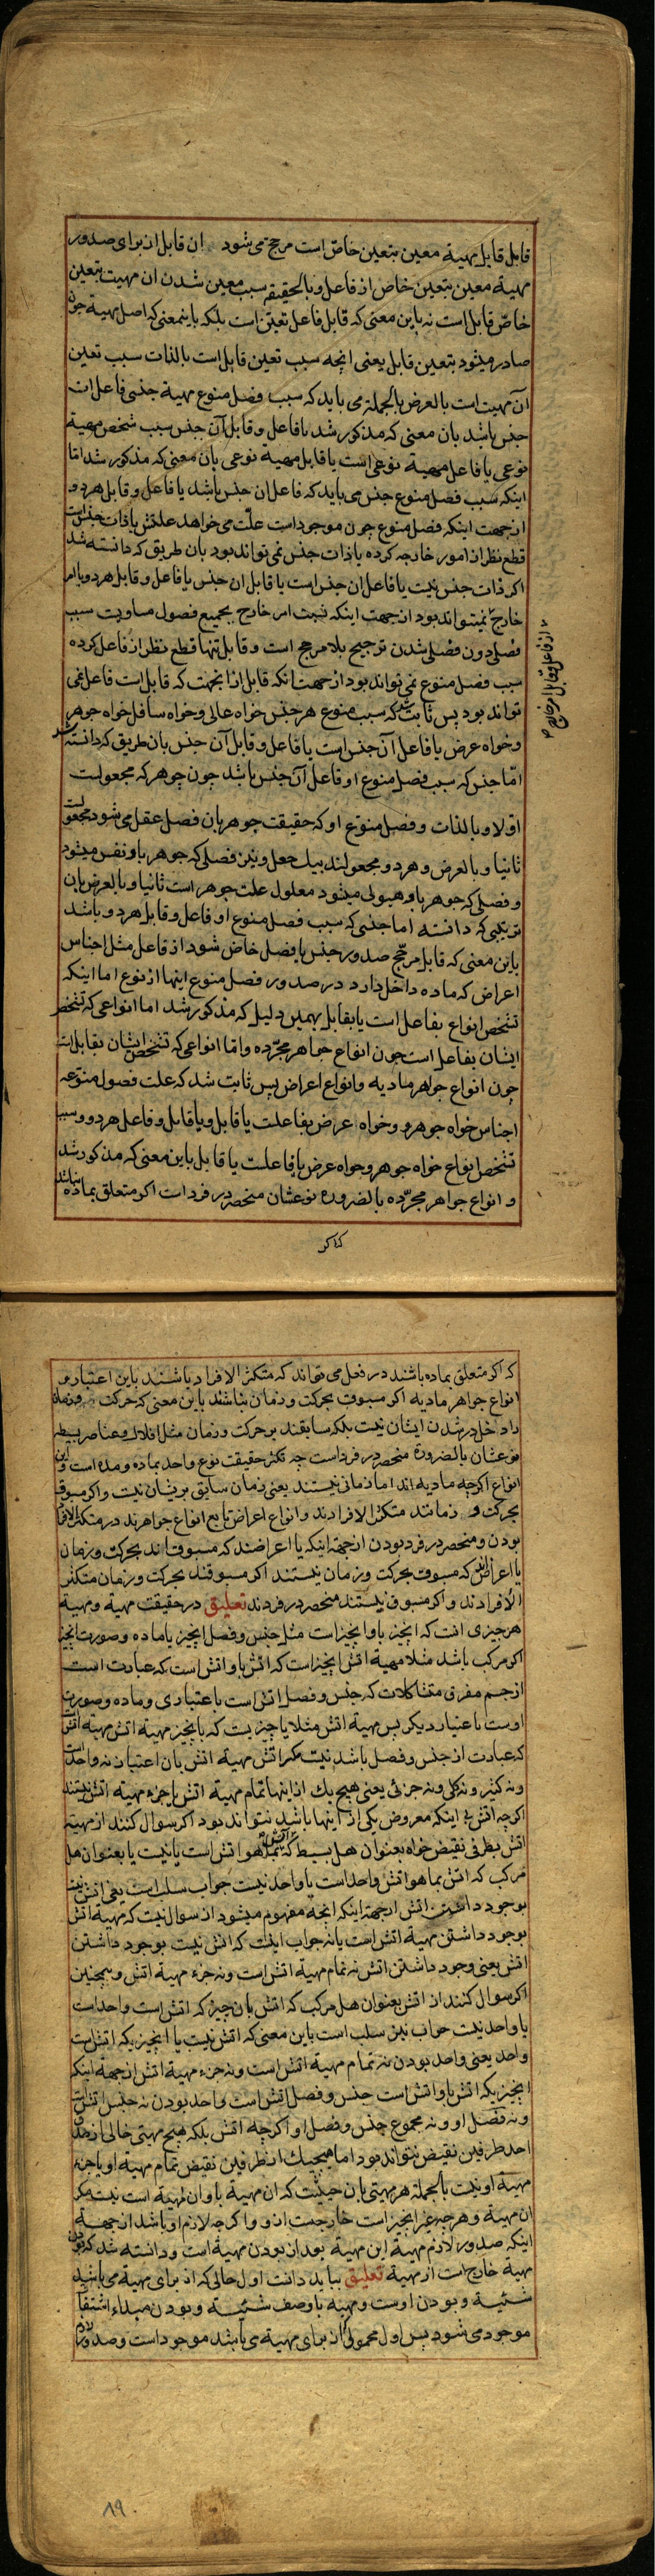 قابل قابل مهیة معین بتعین خاص است مرجح می شود ان قابل از برای صدور
مهیة معین بتعین خاص از فاعل و بالحقیقه سبب معین شدن ان مهیت بتعین
خاص قابل است نه باین معنی که قابل فاعل تعین است بلکه باینمعنی که اصل مهیة چون
صادر میشود بتعین قابل یعنی انچه سبب تعین قابل است بالذات سبب تعین
آن مهیت است بالعرض بالجملة می باید که سبب فصل منوع مهیة جنسی فاعل ان
جنس باشد بان معنی که مذکور شد یا فاعل و قابل آن جنس سبب شخص مهیة
نوعی یا فاعل مهیة نوعی است یا قابل مهیة نوعی بان معنی که مذکور شد اما
اینکه سبب فصل منوع جنس می باید که فاعل ان جنس باشد یا فاعل و قابل هر دو
از جهت اینکه فصل منوع چون موجود است علت می خواهد علتش یا ذات جنس است
قطع نظر از امور خارجه کرده یا ذات جنس نمی تواند بود بان طریق که دانسته شد
اکر ذات جنس نیست یا فاعل ان جنس است یا قابل ان جنس یا فاعل و قابل هر دو یا امر
خارج نمیتواند بود از جهت اینکه نسبت امر خارج بجمیع فصول مساویست سبب
فصلی دون فصلی شدن ترجیح بلا مرجح است و قابل تنها قطع نظر از فاعل کرده
سبب فصل منوع نمی تواند بود از جهت انکه قابل از انجهت که قابل است فاعل نمی
تواند بود پس ثابت که سبب منوع هر جنس خواه عالی و خواه سافل خواه جوهر
و خواه عرض یا فاعل آن جنس است یا فاعل و قابل آن جنس بان طریق که دانسته شد
اما جنس که سبب فصل منوع او فاعل آن جنس باشد چون جوهر که مجعولست
اولا و بالذات و فصل منوع او که حقیقت جوهر بان فصل عقل می شود مجعولست
ثانیا و بالعرض و هر دو مجعولند بیک جعل و نیز فصلی که جوهر باو نفس میشود
و فصلی که جوهر باو هیولی میشود معلول علت جوهر است ثانیا و بالعرض بان
ترتیبی که دانسته اما جنسی که سبب فصل منوع او فاعل و قابل هر دو باشد
باین معنی که قابل مرجح صدور جنس با فصل خاص شود از فاعل مثل اجناس
اعراض که ماده داخل دارد در صدور فصل منوع اینها از نوع اما اینکه
تشخص انواع بفاعل است یا بقابل بهمین دلیل که مذکور شد اما انواعی که تشخص
ایشان بفاعل است چون انواع جواهر مجرده و اما انواعی که تشخص ایشان بقابل است
چون انواع جواهر مادیه و انواع اعراض پس ثابت شد که علت فصول منوعه
اجناس خواه جوهر و خواه عرض بفاعلست یا قابل و یا قابل و فاعل هر دو و سبب
تشخص انواع خواه جوهر و خواه عرض یا فاعلست یا قابل باین معنی که مذکور شد
و انواع جواهر مجرده بالضروره نوعشان منحصر در فرد است اکر متعلق بماده نباشند
از فاعل و قابل امر خارج
که اکر
که اکر متعلق بماده باشند در فعل می تواند که متکثر الافراد باشند باین اعتبار و
انواع جواهر مادیه اکر مسبوق بحرکت و زمان نباشند باین معنی که حرکت و زمان
را دخل در شدن ایشان نیست بلکه سابقند بر حرکت و زمان مثل افلاک و عناصر بسیطه
نوعشان بالضرورة منحصر در فرد است چه تکثر حقیقت نوع واحد بماده و مده است و این
انواع اکرچه مادیه اند اما زمانی نیستند یعنی زمان سابق بریشان نیست و اکر مسبوق
بحرکت و زمانند متکثر الافرادند و انواع اعراض تابع انواع جواهرند در متکثر الافراد
بودن و منحصر در فرد بودن از جهة اینکه یا اعراضند که مسبوق اند بحرکت و زمان
یا اعراض اند که مسبوق بحرکت و زمان نیستند اکر مسبوقند بحرکت و زمان متکثر
الافرادند و اکر مسبوق نیستند منحصر در فردند تعلیق در حقیقت مهیة و مهیة
هر چیزی انست که انچیز باو انچیز است مثل جنس و فصل انچیز یا ماده و صورت انچیز
اکر مرکب باشد مثلا مهیة اتش انچیز است که اتش باو اتش است که عبارت است
از جسم مفرق متشاکلات که جنس و فصل اتش است باعتباری و ماده و صورت
اوست باعتبار دیکر پس مهیة اتش مثلا یا چیزیست که بانچیز مهیة اتش مهیة اتش است
که عبارت از جنس و فصل باشد نیست مکر اتش مهیة اتش بان اعتبار نه واحد است
و نه کثیر و نه کلی و نه جزئی یعنی هیچ یک از اینها تمام مهیة اتش یا جزء مهیة اتش نیستند
اکرچه اتش بی اینکه معروض یکی از اینها باشد نتواند بود اکر سوال کنند از مهیة
اتش بطرفی نقیض خواه بعنوان هل بسیط که اتش بما هو اتش است یا نیست یا بعنوان هل
مرکب که اتش بما هو اتش واحد است یا واحد نیست جواب سلب است یعنی اتش نیست
بوجود داشتن اتش از جهة اینکه انچه مفهوم میشود از سوال نیست که مهیة اتش
بوجود داشتن مهیة اتش است یا نه جواب اینست که اتش نیست بوجود داشتن
اتش یعنی وجود داشتن اتش نه تمام مهیة اتش است و نه جزء مهیة اتش و همچنین
اکر سوال کنند از اتش بعنوان هل مرکب که اتش بان چیز که اتش است واحد است
یا واحد نیست جواب نیز سلب است باین معنی که اتش نیست یا انچیز که اتش است
واحد یعنی واحد بودن نه تمام مهیة اتش است و نه جزء مهیة اتش از جهة اینکه
انچیز که اتش باو اتش است جنس و فصل اتش است واحد بودن نه جنس اتش است
و نه فصل او و نه مجموع جنس و فصل او اکرچه اتش بلکه هیچ مهیتی خالی از
احد طرفین نقیض نتواند بود اما هیچیک از طرفین نقیض تمام مهیة او یا جزء
مهیة او نیست بالجملة هر مهیتی بان حیثیت که ان مهیة باو ان مهیة است نیست مکر
ان مهیة و هر چه غیر انچیز است خارجست از و واکرچه لازم او باشد از جهة
اینکه صدور لازم مهیة این مهیة بود از بودن مهیة است و دانسته شد که بودن
مهیة خارج است از مهیة تعلیق بباید دانست اول حالی که از برای مهیة می باشد
شیئیة و بودن اوست و مهیة باوصف شیئیة و بودن مبداء اشتقاق
موجود می شود پس اول محمولی که از برای مهیة می باشد موجود است و صدور لازم
۸۹